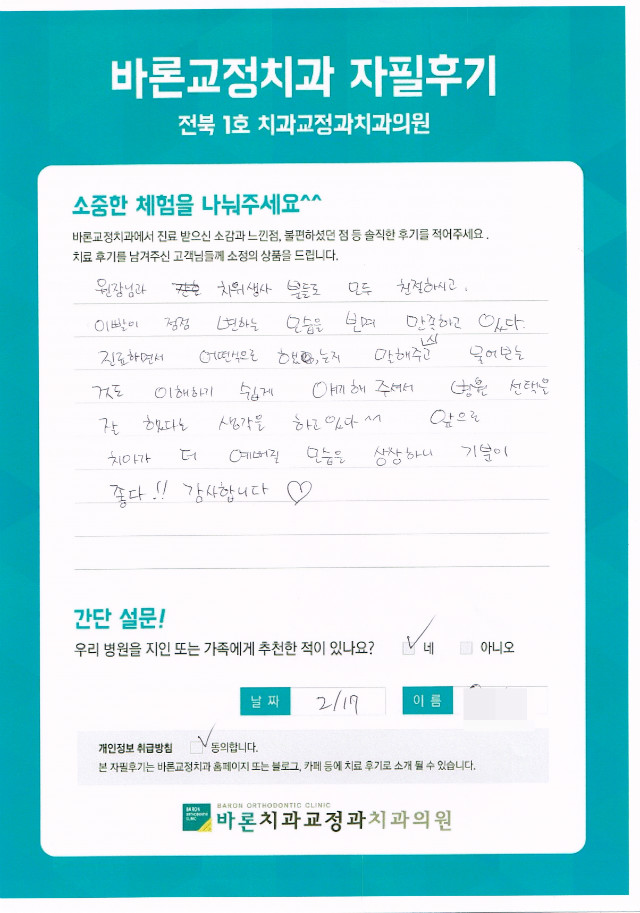 바론교정치과 자필후기
전북 1호 치과교정과치과의원
소중한 체험을 나눠주세요^^
바론교정치과에서 진료 받으신 소감과 느낀점, 불편하셨던 점 등 솔직한 후기를 적어주세요.
치료 후기를 남겨주신 고객님들께 소정의 상품을 드립니다.
원장님과 치위생사 분들도 모두 친절하시고,
이빨이 점점 변하는 모습을 보며 만족하고 있다.
진료하면서 어떤식으로 했는지 말해주고 물어보는
것도 이해하기 쉽게 얘기해 주셔서 병원 선택을
잘 했다는 생각을 하고있다^^ 앞으로
치아가 더 예뻐질 모습을 상상하니 기분이
좋다!! 감사합니다 ♡
간단 설문!
우리 병원을 지인 또는 가족에게 추천한 적이 있나요? ✓ 네 아니오
날 짜 2/17 이 름
개인정보 취급방침 ✓ 동의합니다.
본 자필후기는 바론교정치과 홈페이지 또는 블로그, 카페 등에 치료 후기로 소개 될 수 있습니다.
BARON ORTHODONTIC CLINIC
BARON ORTHODONTIC CLINIC
바론치과교정과치과의원